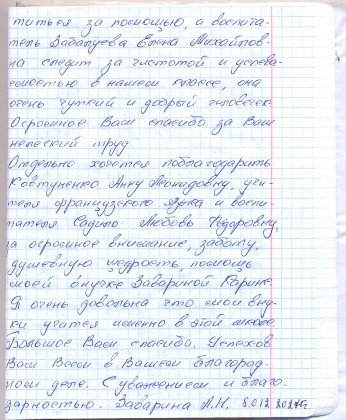 титься за помощью, а воспита-
тель Завалуева Елена Михайлов-
на следит за чистотой и успева-
емостью в нашем классе, она
очень чуткий и добрый человечек
Огромное Вам спасибо за Ваш
нелегкий труд
Отдельно хочется поблагодарить
Ковтуненко Анну Леонидовну, учи-
теля французского языка и воспи-
тателя Любовь Фёдоровну,
за огромное внимание, заботу,
душевную щедрость, помощь
моей внучке Завариной Карине.
Я очень довольна что мои вну-
ки учатся именно в этой школе.
Большое Вам спасибо. Успехов
Вам Всем в Вашем благород-
ном деле. С уважением и благо-
дарностью. Заварина Л.Н.